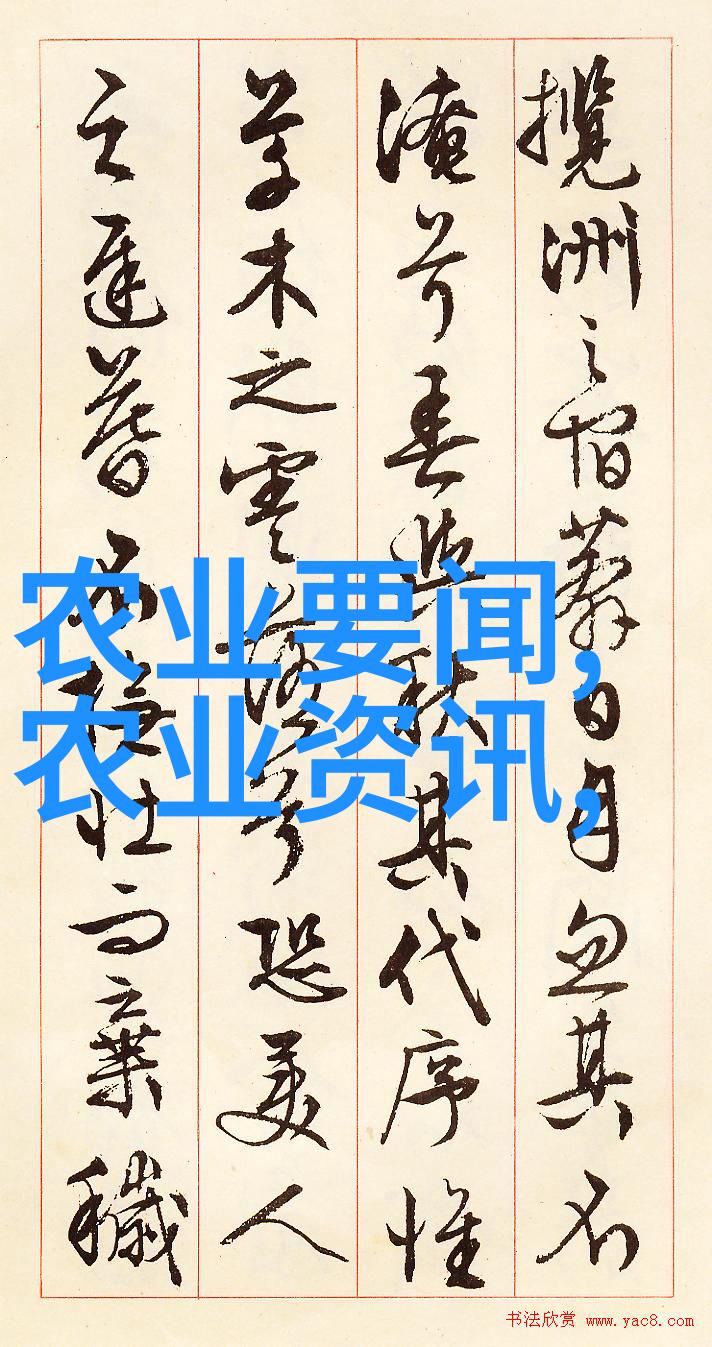 攬洲之宿莽日月忽其不
淹兮春與秋其代序惟
草木之零落兮恐美人
之遲暮不撫壯而棄穢
农业要闻,
农业资讯,
书法欣赏 www.yac8.com